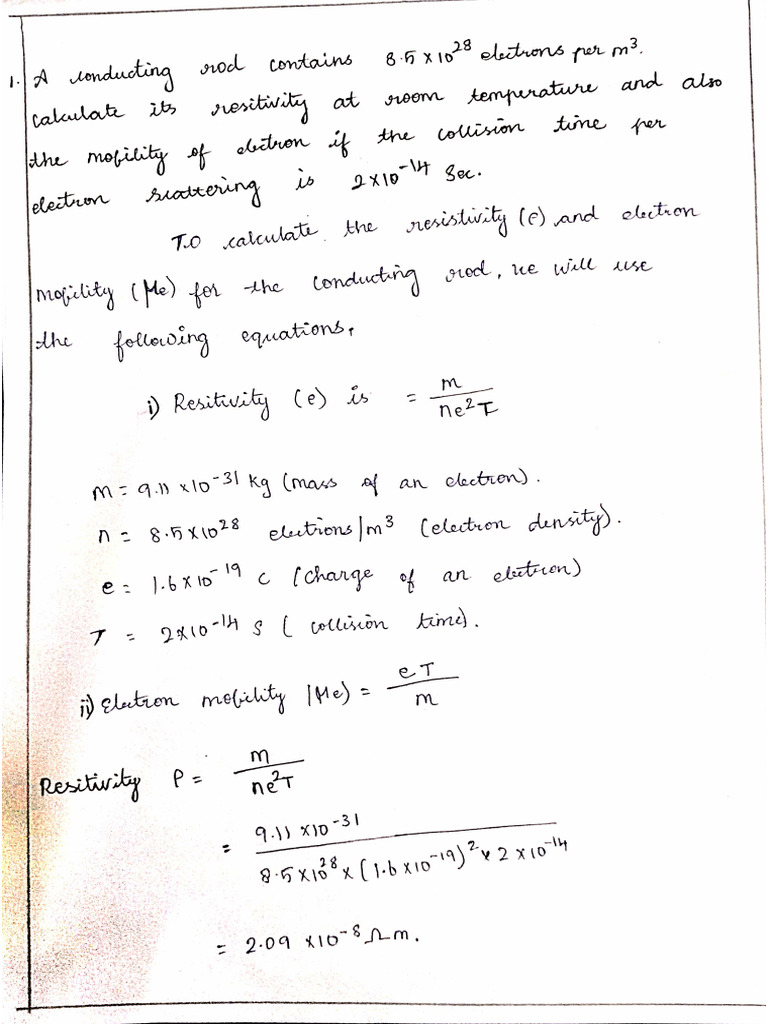 1. A conducting rod contains 8.5 × 10²⁸ electrons per m³.
calculate its resitivity at room temperature and also
the mobility of electron if the collision time per
electron scattering is 2×10⁻¹⁴ Sec.
TO calculate the resistivity (ρ) and electron
mobility (μe) for the conducting rod, we will use
the following equations,
i) Resitivity (e) is = m / ne²τ
m = 9.11 × 10⁻³¹ kg (mass of an electron).
n = 8.5 × 10²⁸ electrons/m³ (electron density).
e = 1.6 × 10⁻¹⁹ C (charge of an electron)
τ = 2×10⁻¹⁴ s ( collision time).
ii) Electron mobility (μe) = eτ / m
Resitivity ρ = m / ne²τ
= 9.11 × 10⁻³¹ / 8.5 × 10²⁸ × (1.6 × 10⁻¹⁹)² × 2 × 10⁻¹⁴
= 2.09 × 10⁻⁸ Ωm.